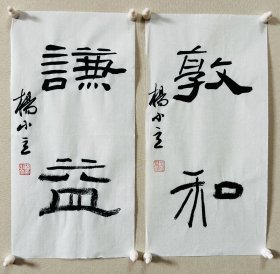 謙益
楊小立
敦和
楊小立